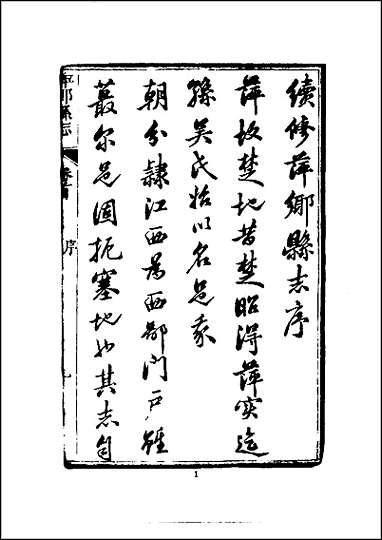 續修萍鄉縣志序
萍故楚地昔楚昭得萍實迄
孫吳氏始以名邑我
朝分隸江西爲西鄙門戶雖
蕞尔邑固扼塞地也其志自
萍鄉縣志
序
1